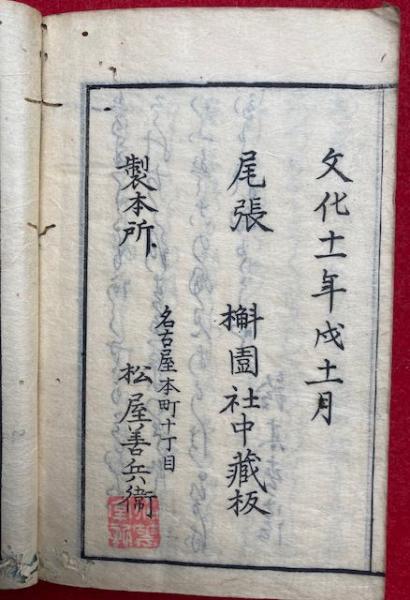 文化十一年戌十一月
尾張 檞園社中藏板
製本所
名古屋本町十丁目
松屋善兵衛